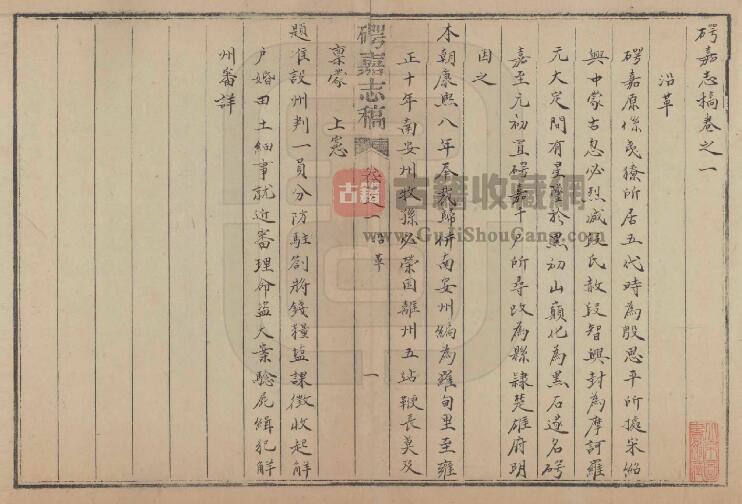 碍嘉志稿卷之一
沿革
碍嘉原係夷獠所居五代時為段思平所據宋紹
興中蒙古忽必烈滅段氏敵段智興封為摩訶羅
元大定間有星墜於黑初山巔化為黑石遂名碍
嘉至元初置碍嘉千戶所尋改為縣隸楚雄府明
因之
本朝康熙八年奉裁歸併南安州編為雞旬里至雍
正十年南安州牧孫必榮因離州五站鞭長莫及
碍嘉志稿 卷之一 沿革 一
稟蒙 上憲
題准設州判一員分防駐劄將錢糧鹽課徵收起解
戶婚田土細事就近審理命盜大案驗屍緝犯解
州審詳
古籍 古籍收藏網
www.GuJiShouCang.com